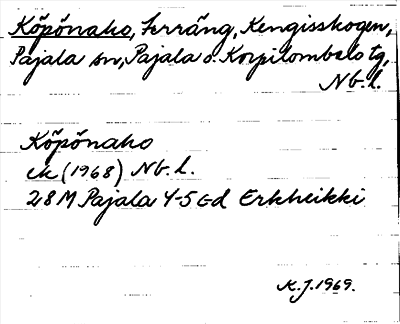 Kőpőnako, terräng, Kengisskogen,
Pajala sn, Pajala o. Korpilombolo tg,
Nb. l.
Kőpőnako
ek (1968) Nb. l.
28M Pajala 4-5 c-d Erkheikki
K.J. 1969.